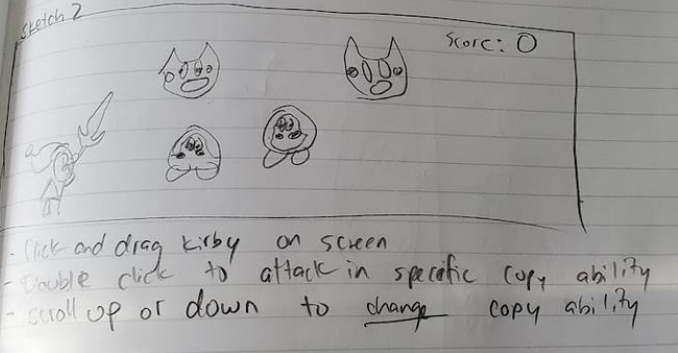 Sketch 2
Score: 0
- Click and drag kirby on screen
- Double click to attack in specific copy ability
- Scroll up or down to change copy ability